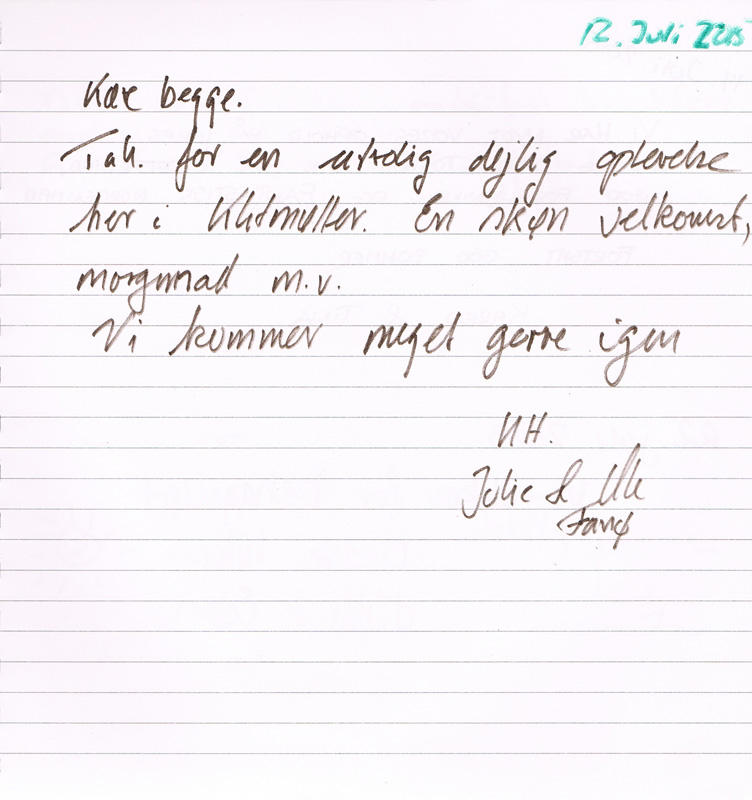 12. Juli 2015
Kære begge.
Tak. for en utrolig dejlig oplevelse
her i Klitmøller. En skøn velkomst,
morgenmad m.v.
Vi kommer meget gerne igen
KH.
Julie &
Fanø